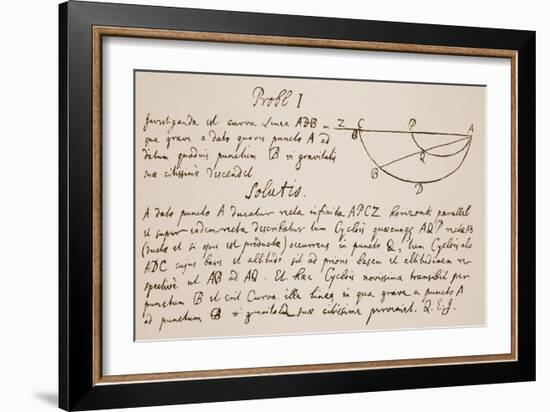 Probl I
Investiganda est curva Linea ADB in
qua grave a dato quovis puncto A ad
datum quodvis punctum B vi gravitatis
suæ citissime descendet
Z C P A
Q
B
D
Solutio.
A dato puncto A ducatur recta infinita APCZ horizonti parallela
et super eadem recta describatur tum Cyclois quæcunque AQP rectæ AB
(ducta et si opus est producta) occurrens in puncto Q, tum Cyclois alia
ADC cujus basis et altitudo sit ad prioris basem et altitudinem re-
spective ut AB ad AQ. Et hæc Cyclois novissima transibit per
punctum B et erit Curva illa linea in qua grave a puncto A
ad punctum B vi gravitatis suæ citissime perveniet. Q.E.I.